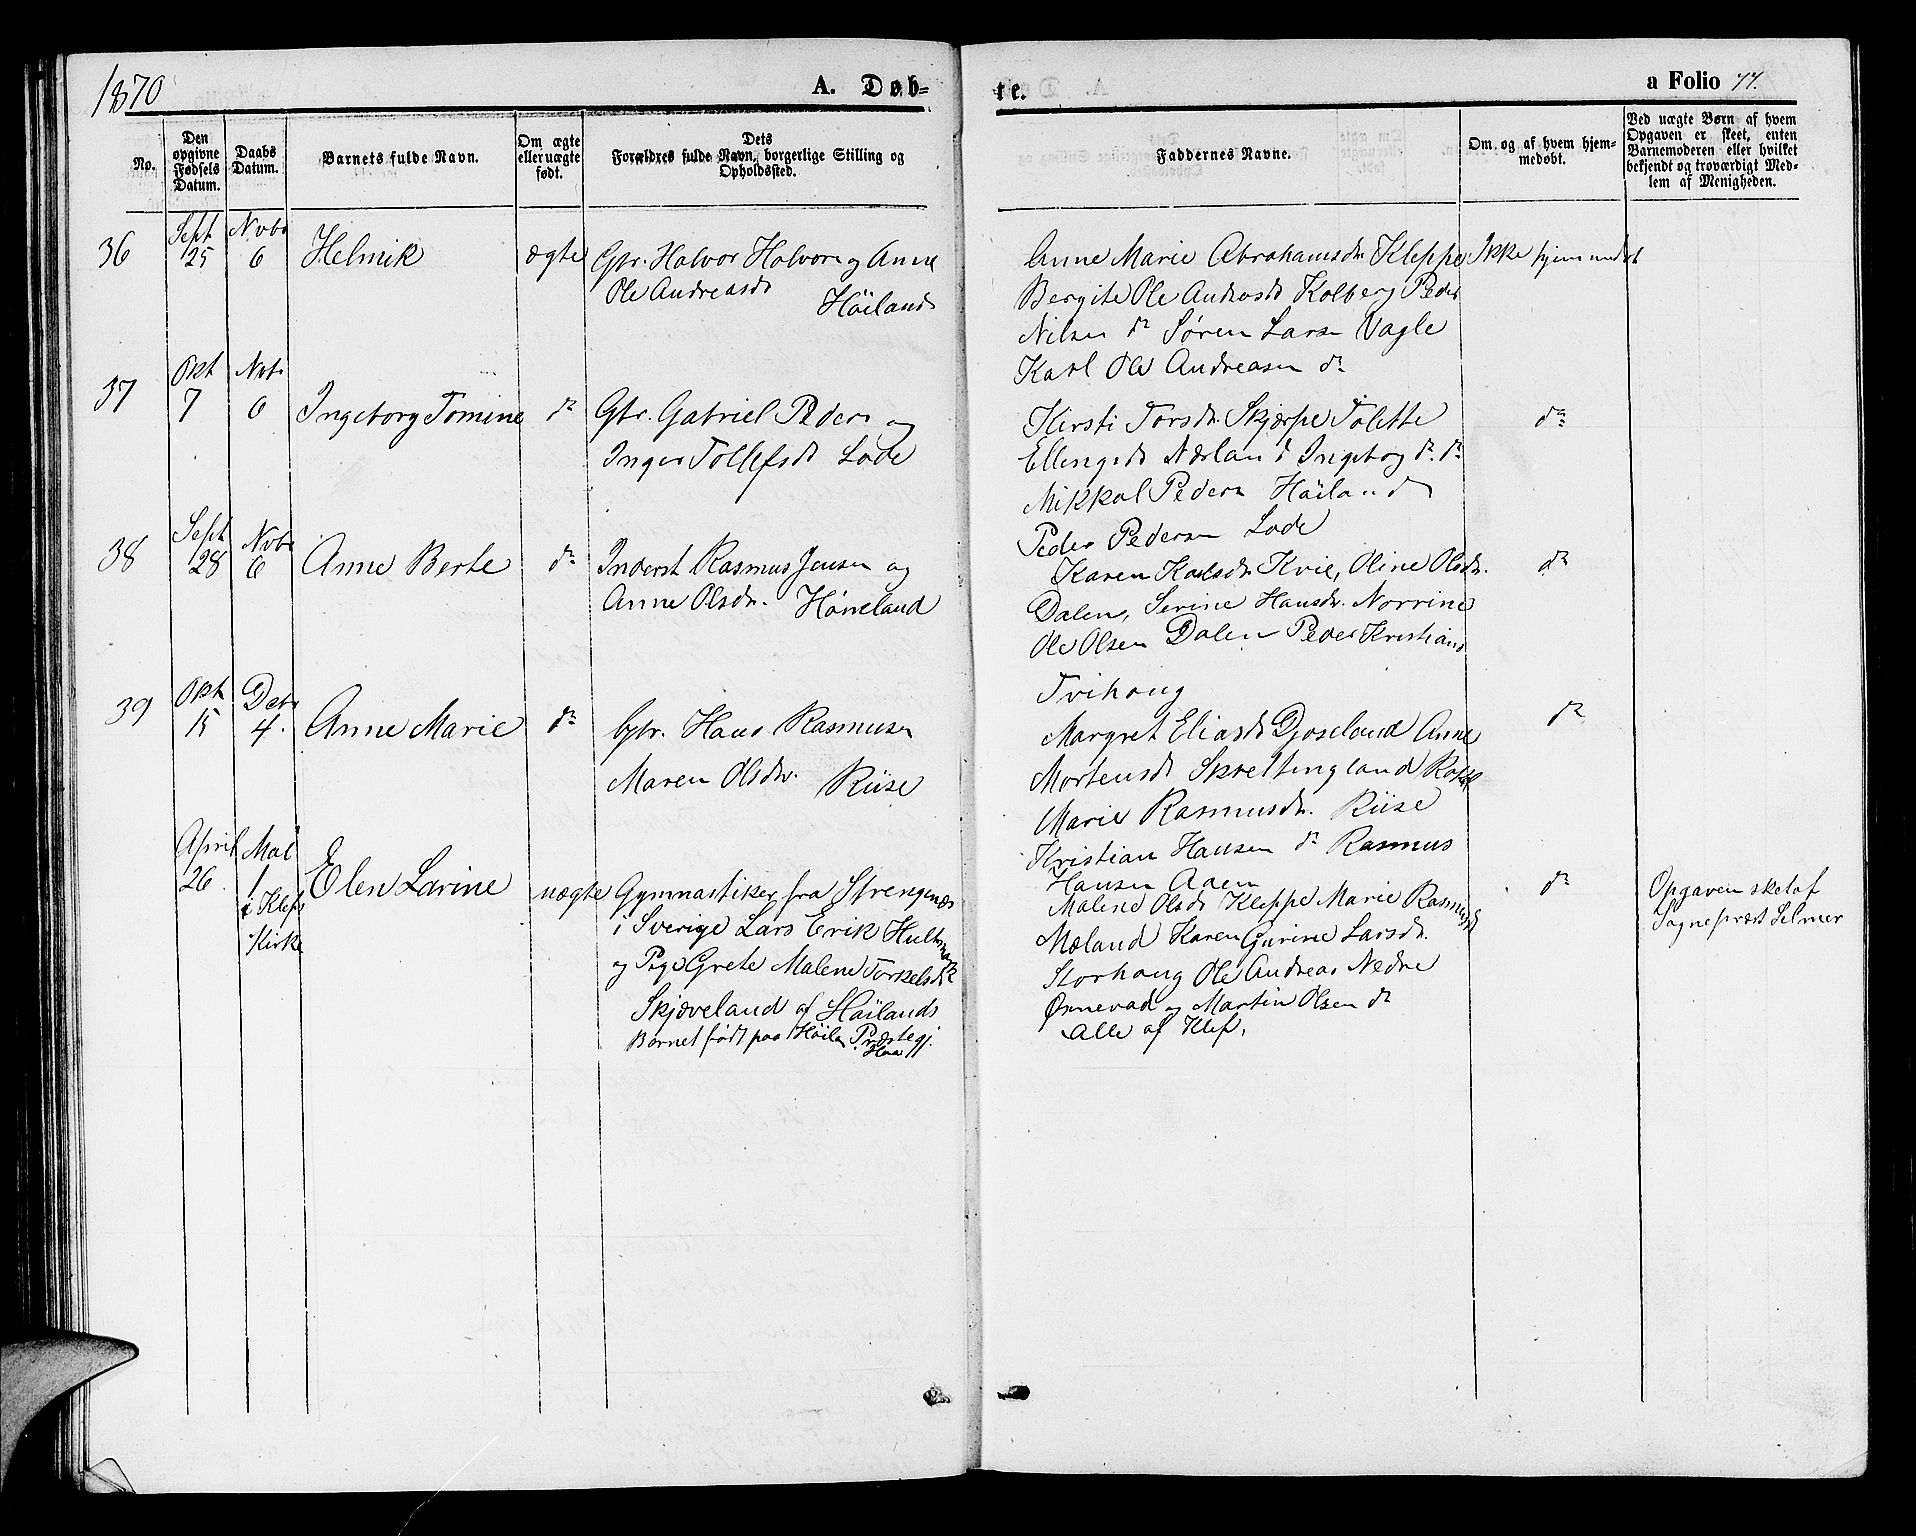 1870
A. Døb-
te.
a Folio 77.
No.
Den opgivne Fødsels Datum.
Daabs Datum.
Barnets fulde Navn.
Om ægte eller uægte født.
Dets Forældres fulde Navn, borgerlige Stilling og Opholdssted.
Faddernes Navne.
Om og af hvem hjemmedøbt.
Ved uægte Børn af hvem Opgaven er skeet, enten Barnemoderen eller hvilket bekjendt og troværdigt Medlem af Menigheden.
36
Sept 25
Novbr 6
Helmik
ægte
Gbr. Halvor Halvors og Anne
Ole Andreasdr
Höiland
Anne Marie Abrahamsdr Kleppe
Bergite Ole Andreasdr Kolberg Peder
Nilsen do Søren Larsen Vagle
Karl Ole Andreasen do
Ikke hjemmedøbt
37
Okt 7
Nvbr 6
Ingeborg Tomine
do
Gbr. Gabriel Peders og
Inger Tollefsdr Lode
Kirsti Torsdr. Skjærpe Tolette
Ellingsdr Nærland Ingeborg do. do
Mikkal Pedersen Höiland
Peder Pedersen Lode
do
38
Sept 28
Nvbr 6
Anne Berte
do
Inderst Rasmus Jensen og
Anne Olsdr. Høneland
Karen Karlsdr. Kvie, Oline Olsdr.
Dalen, Serine Hansdr. Norrine
Ole Olsen Dalen Peder Kristians
Tvihoug
do
39
Okt 15
Debr 4.
Anne Marie
do
Gbr. Hans Rasmusen
Maren Olsdr. Riise
Margret Eliasdr Djoseland Anne
Mortensdr Skrettingland
Marie Rasmusdr. Riise
Kristian Hansen do Rasmus
Hansen Aaen
do
April 26
Mai 1
i Klep
Kirke
Elen Larine
uægte
Gymnastiker fra Strengenæs
i Sverige Lars Erik Hultmark
og Pige Grete Malene Torkelsdr
Skjæveland af Höilands
Barnet født paa Höiland Præstegj.
Haa
Malene Olsdr Kleppe Marie Rasmusdr
Mæland Karen Gurine Larsdr.
Storhoug Ole Andreas Nedre
Ørnevad og Martin Olsen do
Alle af Klep.
do
Opgaven sket af
Sognepræst Selmer